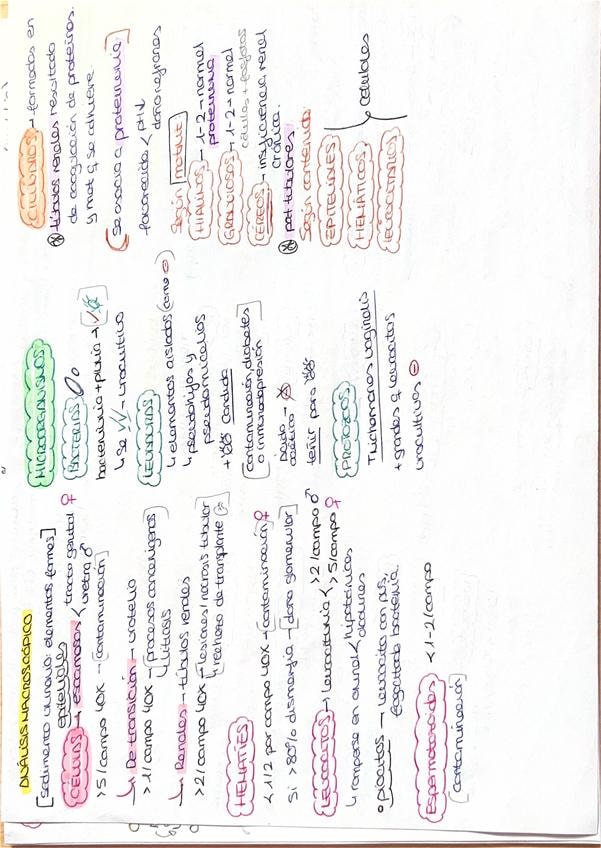 ANÁLISIS MACROSCÓPICO
[sedimento urinario: elementos formes]
epiteliales
CÉLULAS → escamosas < tracto genital ♀
uretra ♂
>5/campo 40X → [contaminación]
↳ De transición → urotelio
>1/campo 40X → [procesos cancerígenos
litiasis
↳ Renales → túbulos renales
>2/campo 40X [lesiones/necrosis tubular
rechazo de transplante
HEMATÍES
<1/2 por campo 40X → [contaminación] ♀
Si >80% dismorfia → [daño glomerular]
LEUCOCITOS → leucocituria < >2/campo ♂
>5/campo ♀
↳ romperse en orina < hipotónicas
alcalinas
• piocitos → leucocito con pus,
fagocitado bacteria.
Espermatozoides <1-2/campo
[contaminación]
MICROORGANISMOS
BACTERIAS
bacteriuria + piuria →
↳ Se → urocultivo
LEVADURAS
↳ elementos aislados (como
↳ pseudohifas y
pseudomicelios
+ candida
[contaminación, diabetes
o inmunodepresión]
Ácido →
acético
teñir para
PROTOZOOS
Trichomonas vaginalis
+ grandes q leucocitos
urocultivos ⊖
CILINDROS → formados en
túbulos renales resultado
de coagulación de proteínas
y mat q se adhiere.
[se asocia a proteinuria]
favorecida < pH↓
daño nefronas
Según matriz
HIALINOS → 1-2 → normal
proteinuria
GRANULOSOS → 1-2 → normal
células + fosfatos
CÉREOS → insuficiencia renal
crónica.
pat tubulares
Según contenido:
EPITELIALES
HEMÁTICOS
LEUCOCITARIOS
celulares